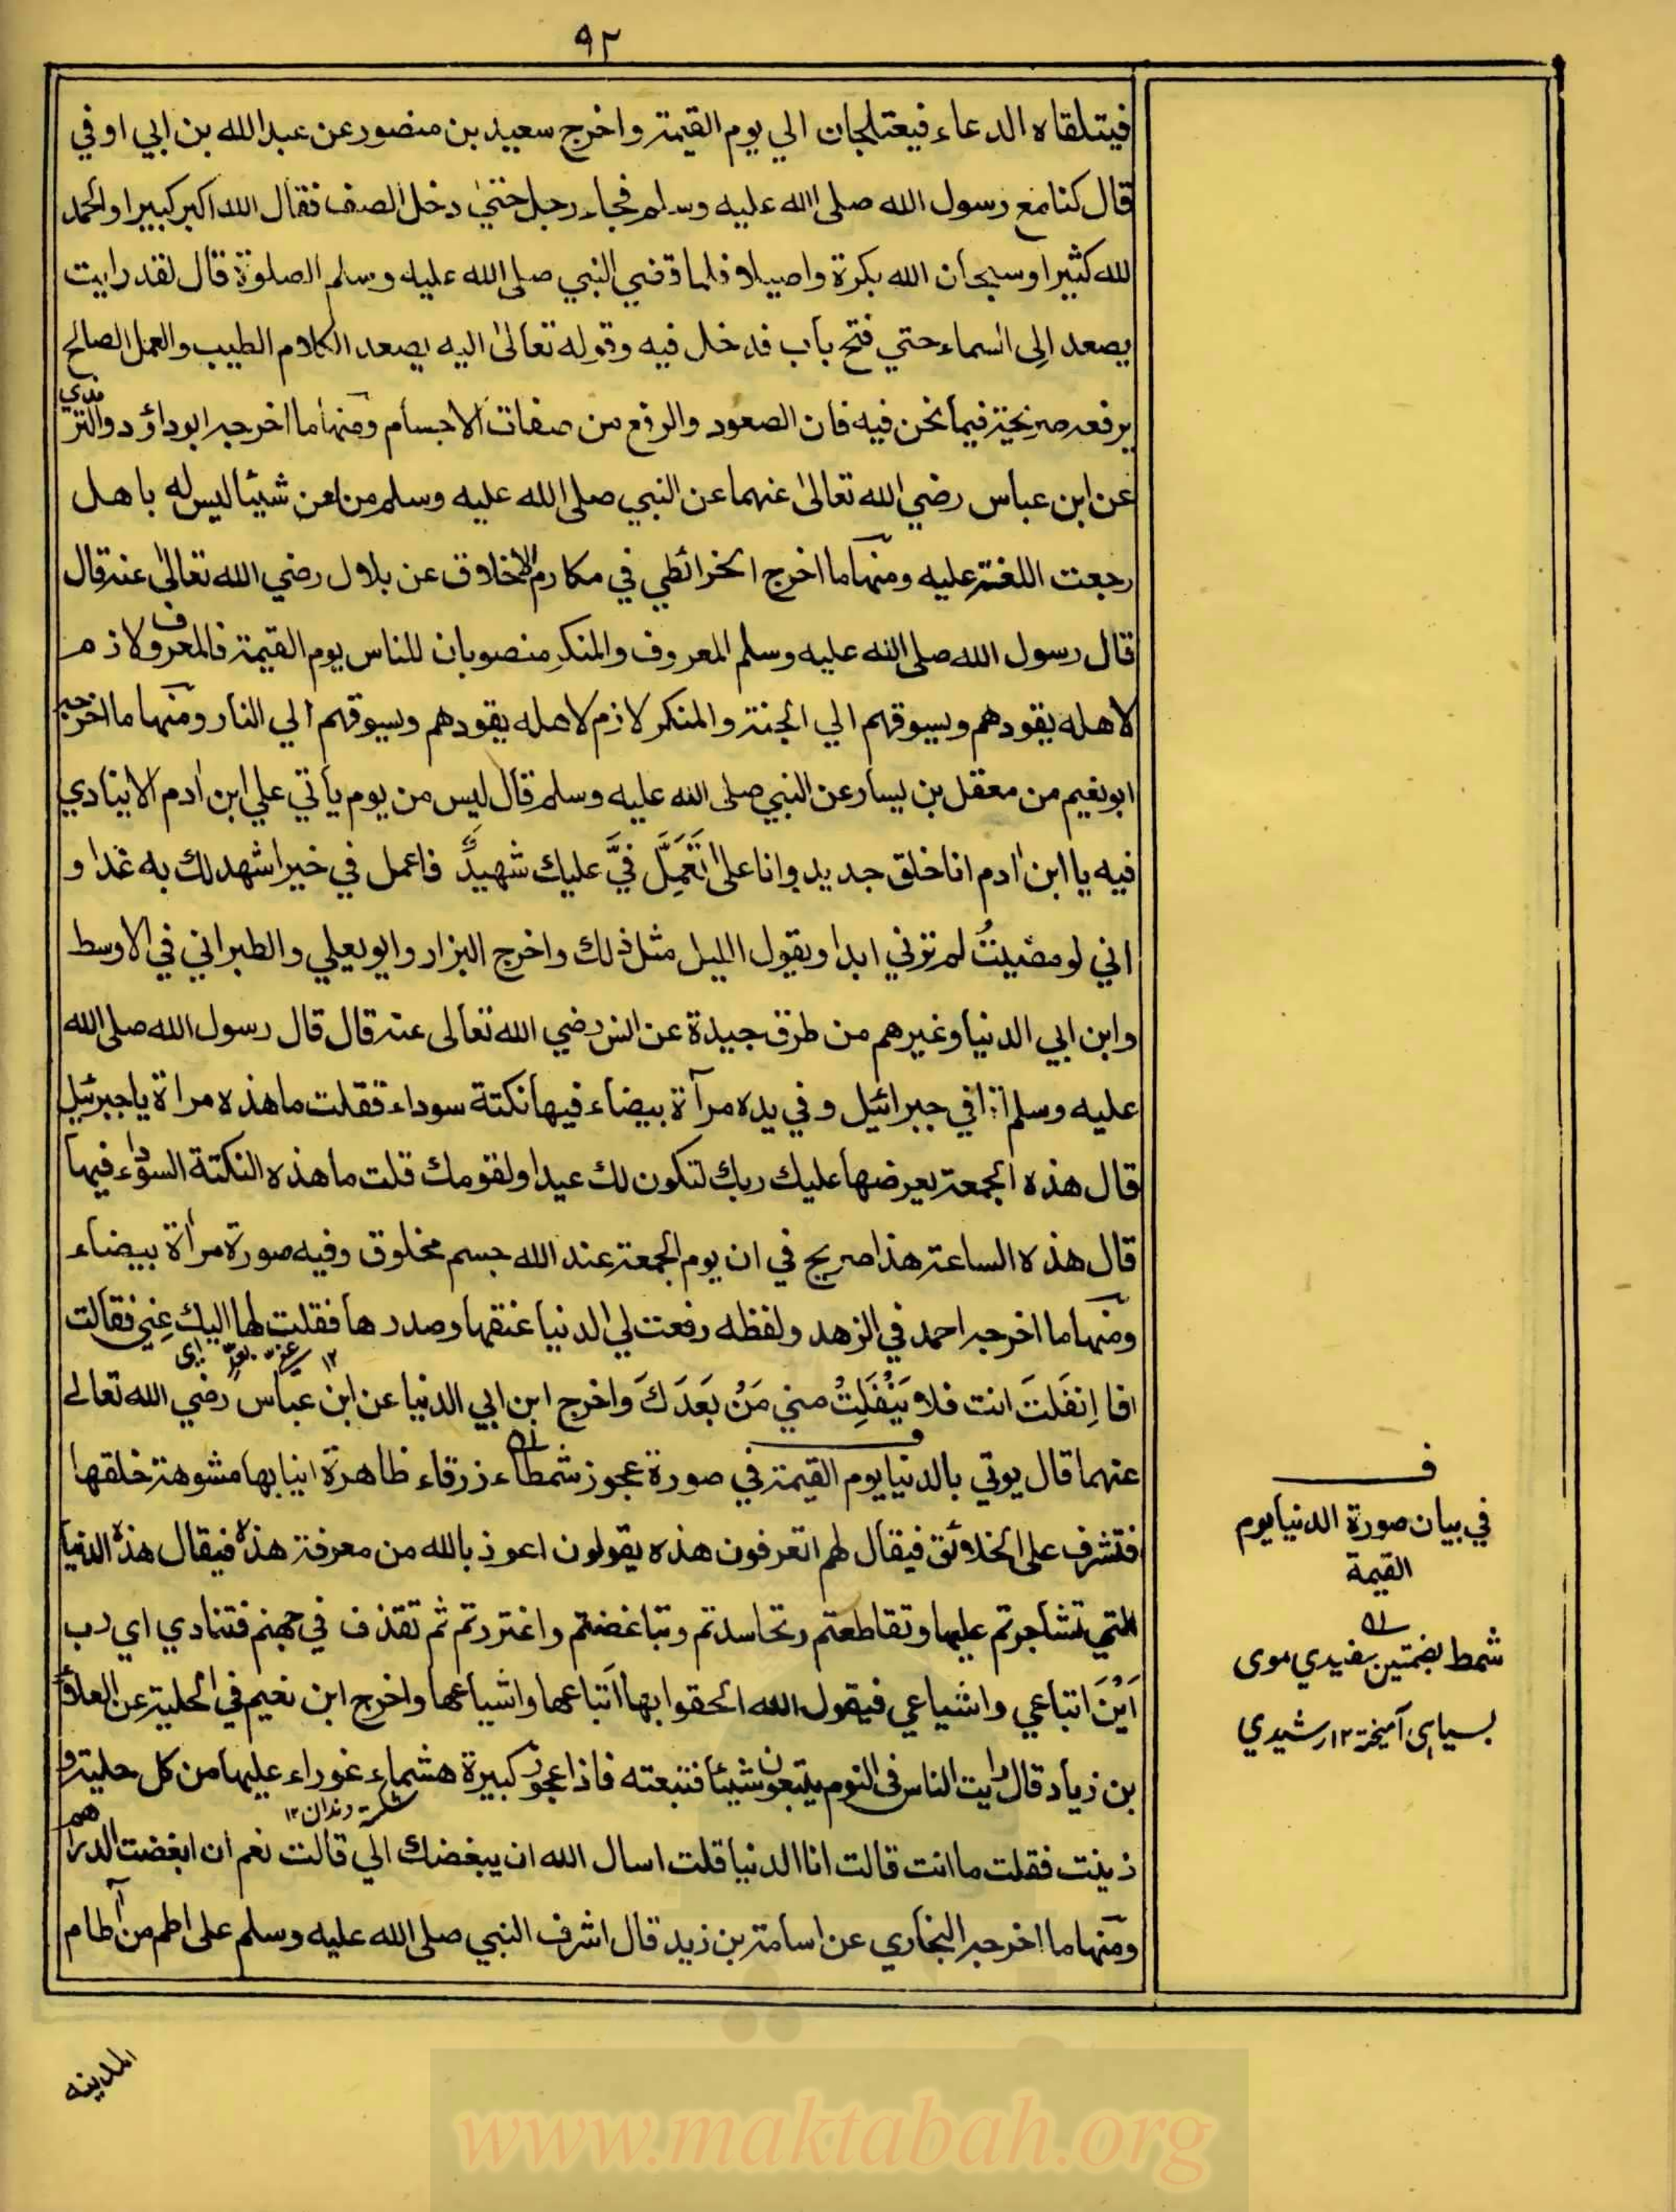 ٩٢
فيتلقاه الدعاء فيعتلجان الي يوم القيمة واخرج سعيد بن منصور عن عبد الله بن ابي اوفي
قال كنا مع رسول الله صلى الله عليه وسلم فجاء رجل حتى دخل الصف فقال الله اكبر كبيرا والحمد
لله كثيرا وسبحان الله بكرة واصيلا فلما قضي النبي صلى الله عليه وسلم الصلوة قال لقد رايت
يصعد الى السماء حتي فتح باب فدخل فيه وقوله تعالى اليه يصعد الكلام الطيب والعمل الصالح
يرفعه صريحة فيما نحن فيه فان الصعود والرفع من صفات الاجسام ومنها ما اخرجه ابو داؤد والترمذي
عن ابن عباس رضي الله تعالى عنهما عن النبي صلى الله عليه وسلم من لعن شيئا ليس له باهل
رجعت اللعنة عليه ومنها ما اخرج الخرائطي في مكارم الاخلاق عن بلال رضي الله تعالى عنه قال
قال رسول الله صلى الله عليه وسلم المعروف والمنكر منصوبان للناس يوم القيمة فالمعروف لازم
لاهله يقودهم ويسوقهم الي الجنة والمنكر لازم لاهله يقودهم ويسوقهم الي النار ومنها ما اخرجه
ابو نعيم من معقل بن يسار عن النبي صلى الله عليه وسلم قال ليس من يوم يأتي علي ابن ادم الا ينادي
فيه يا ابن ادم انا خلق جديد وانا على تَعْمَلَ فيَّ عليك شهيدٌ فاعمل في خيرا شهد لك به غدا و
اني لو مضيتُ لم تروني ابدا ويقول الليل مثل ذلك واخرج البزار وابو يعلي والطبراني في الاوسط
وابن ابي الدنيا وغيرهم من طرق جيدة عن انس رضي الله تعالى عنه قال قال رسول الله صلى الله
عليه وسلم اتاني جبرائيل وفي يده مرآة بيضاء فيها نكتة سوداء فقلت ما هذه مراة يا جبرئيل
قال هذه الجمعة يعرضها عليك ربك لتكون لك عيدا ولقومك قلت ما هذه النكتة السوداء فيها
قال هذه الساعة هذا صريح في ان يوم الجمعة عند الله جسم مخلوق وفيه صورة مرأة بيضاء
ومنها ما اخرجه احمد في الزهد ولفظه رفعت لي الدنيا عنقها وصدرها فقلت لها اليك عني فقالت
افا اِنفَلَتَ انت فلا يَنْفَلِتُ مني مَنْ بَعَدَكَ واخرج ابن ابي الدنيا عن ابن عباس رضي الله تعالى
عنهما قال يوتي بالدنيا يوم القيمة في صورة عجوز شمطاء زرقاء ظاهرة انيابها مشوهة خلقها
فتشرف على الخلائق فيقال لهم اتعرفون هذه يقولون اعوذ بالله من معرفة هذه فيقال هذه الدنيا
التي تشاجرتم عليها وتقاطعتم وتحاسدتم وتباغضتم واغتررتم ثم تقذف في جهنم فتنادي اي رب
اَيْنَ اتباعي واشياعي فيقول الله الحقوا بها اتباعها واشياعها واخرج ابن نعيم في الحلية عن العلاء
بن زياد قال رايت الناس في النوم يتبعون شيئا فتبعته فاذا عجوز كبيرة هشماء عوراء عليها من كل حلية و
شكسته دندان ١٢
زينت فقلت ما انت قالت انا الدنيا قلت اسال الله ان يبغضك الي قالت نعم ان ابغضت الدراهم
ومنها ما اخرجه البخاري عن اسامة بن زيد قال اشرف النبي صلى الله عليه وسلم على اطم من آطام
المدينه
ف
في بيان صورة الدنيا يوم
القيمة
شمط بضمتين سفيدي موى
بسياهى آميخته ١٢ رشيدي
www.maktabah.org